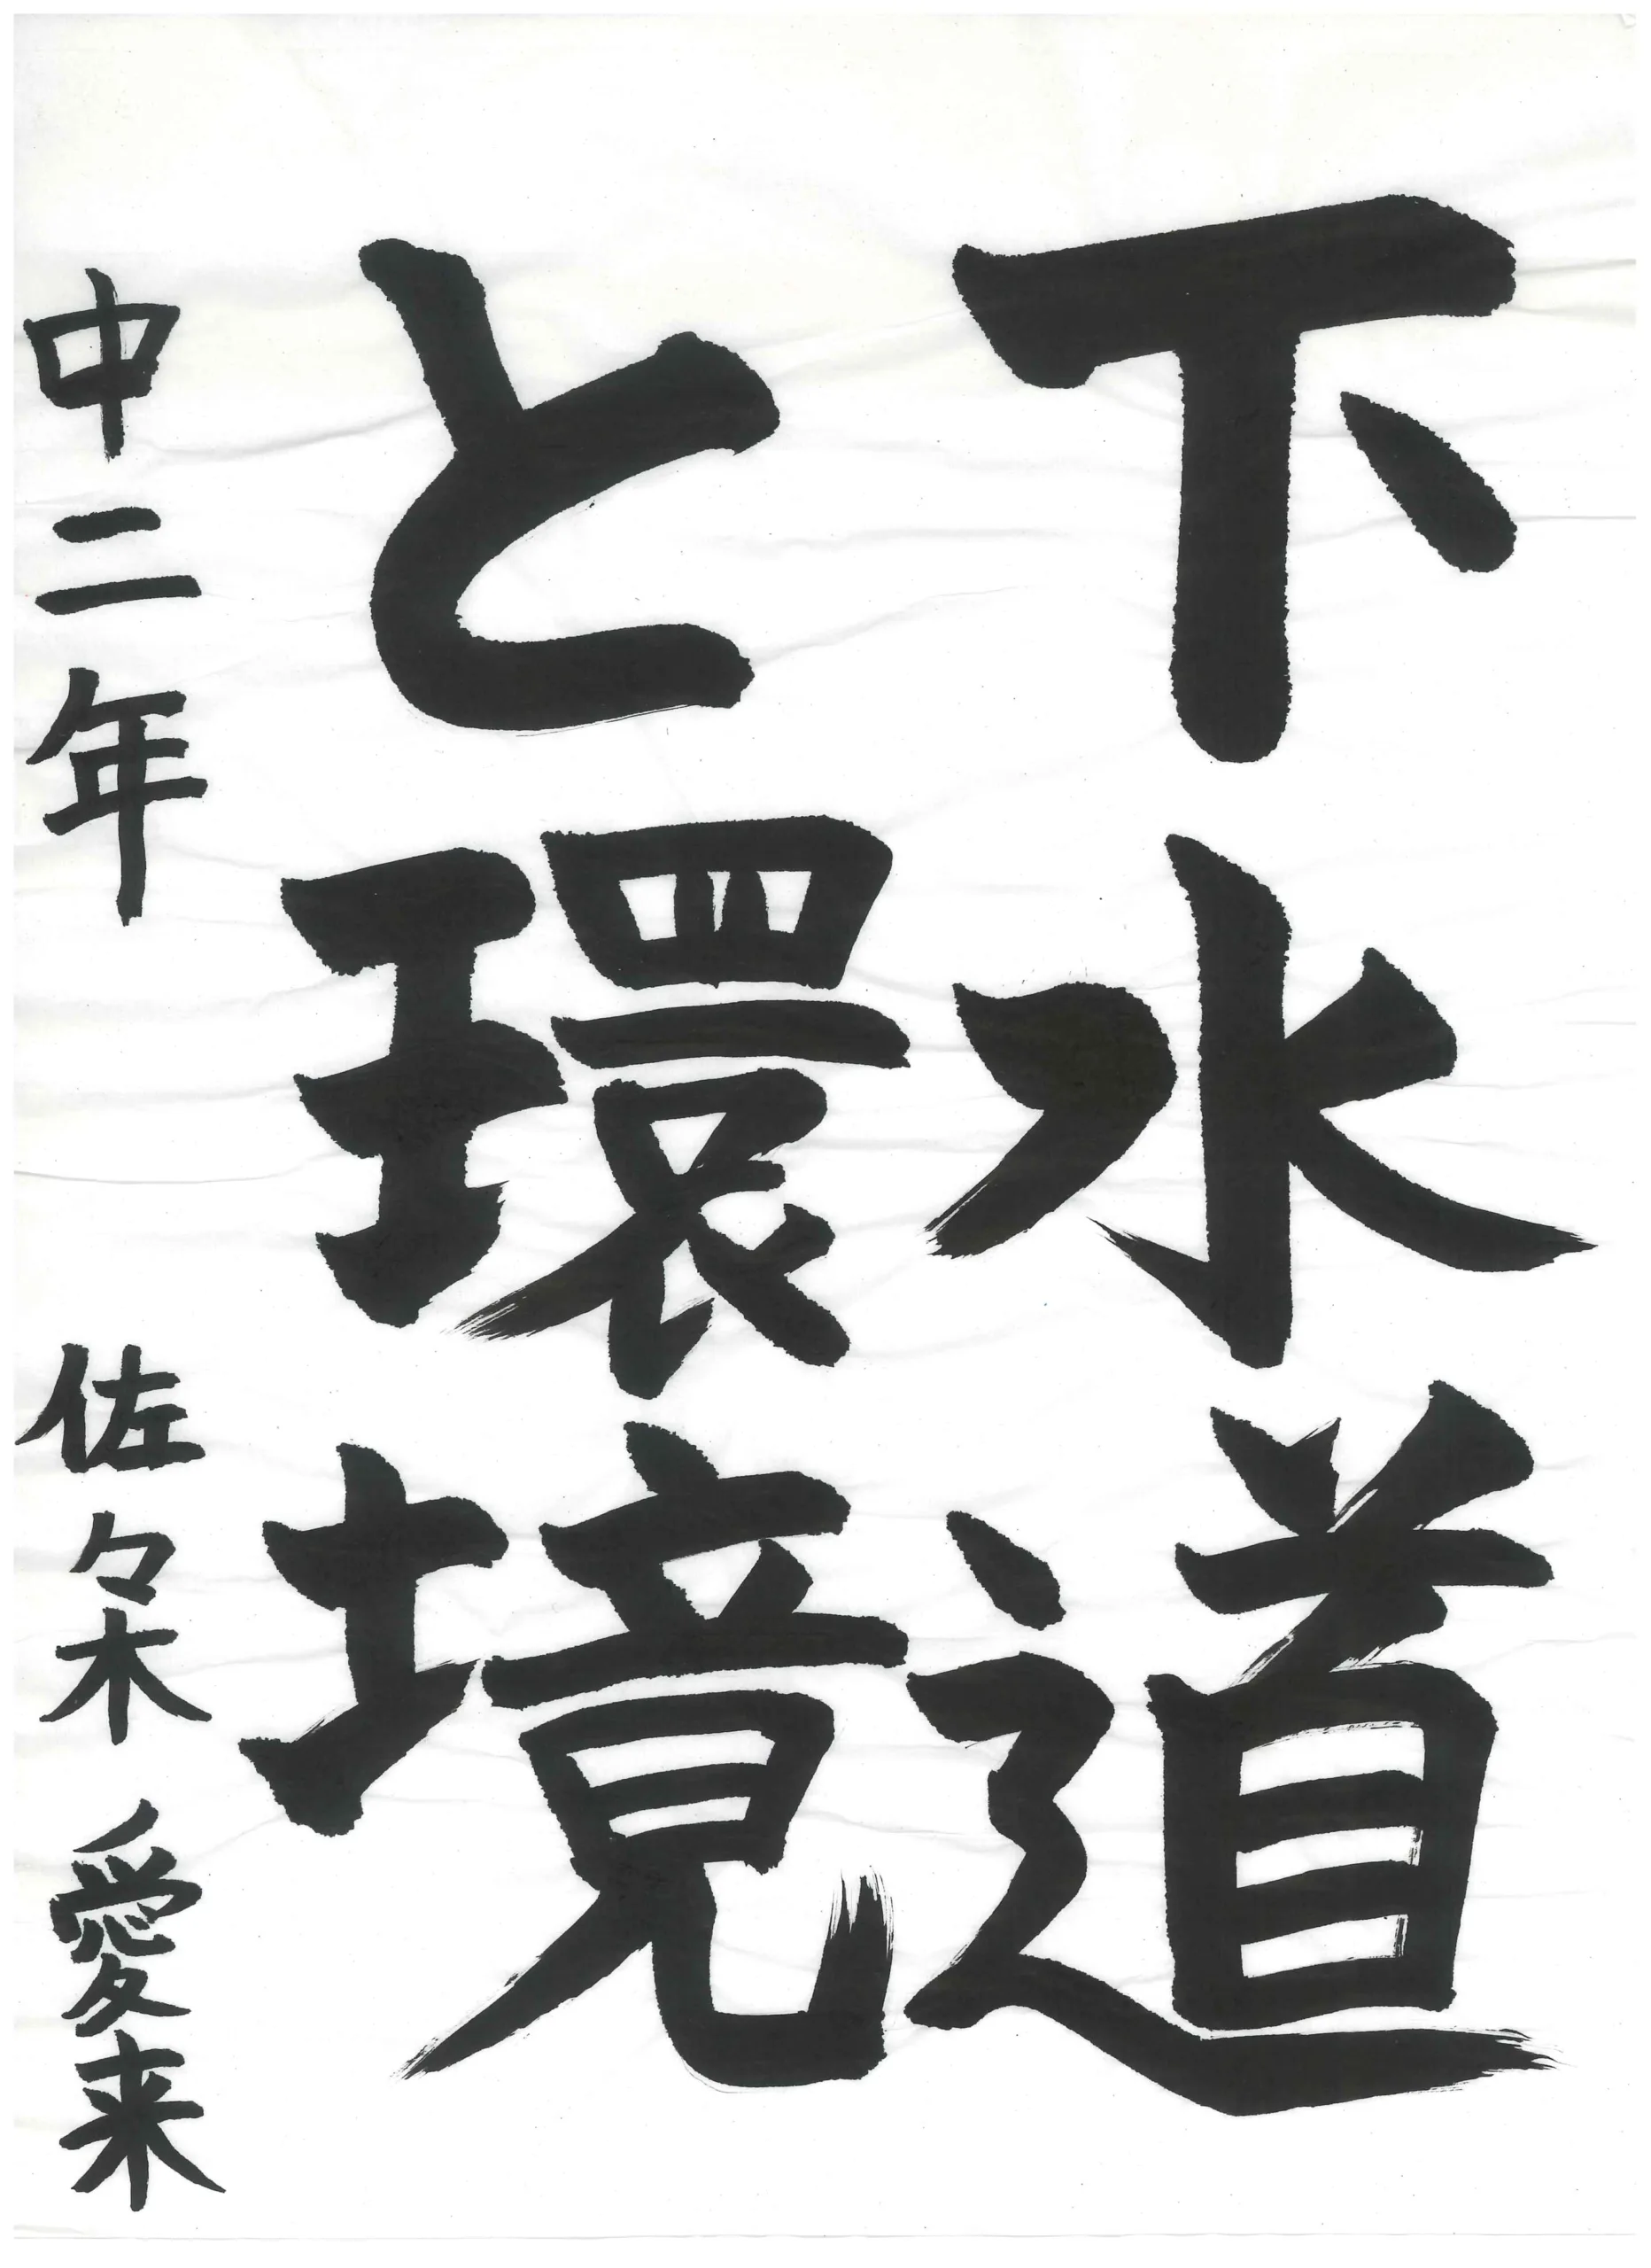 下水道
と環境
中二年 佐々木 愛来